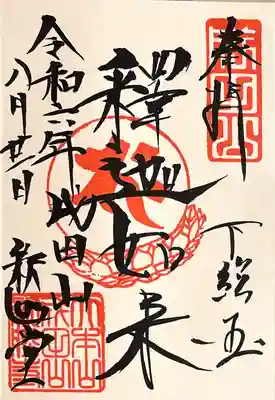 奉拝
下総国
釋迦如来
成田山
釈迦堂
令和六年
八月廿日